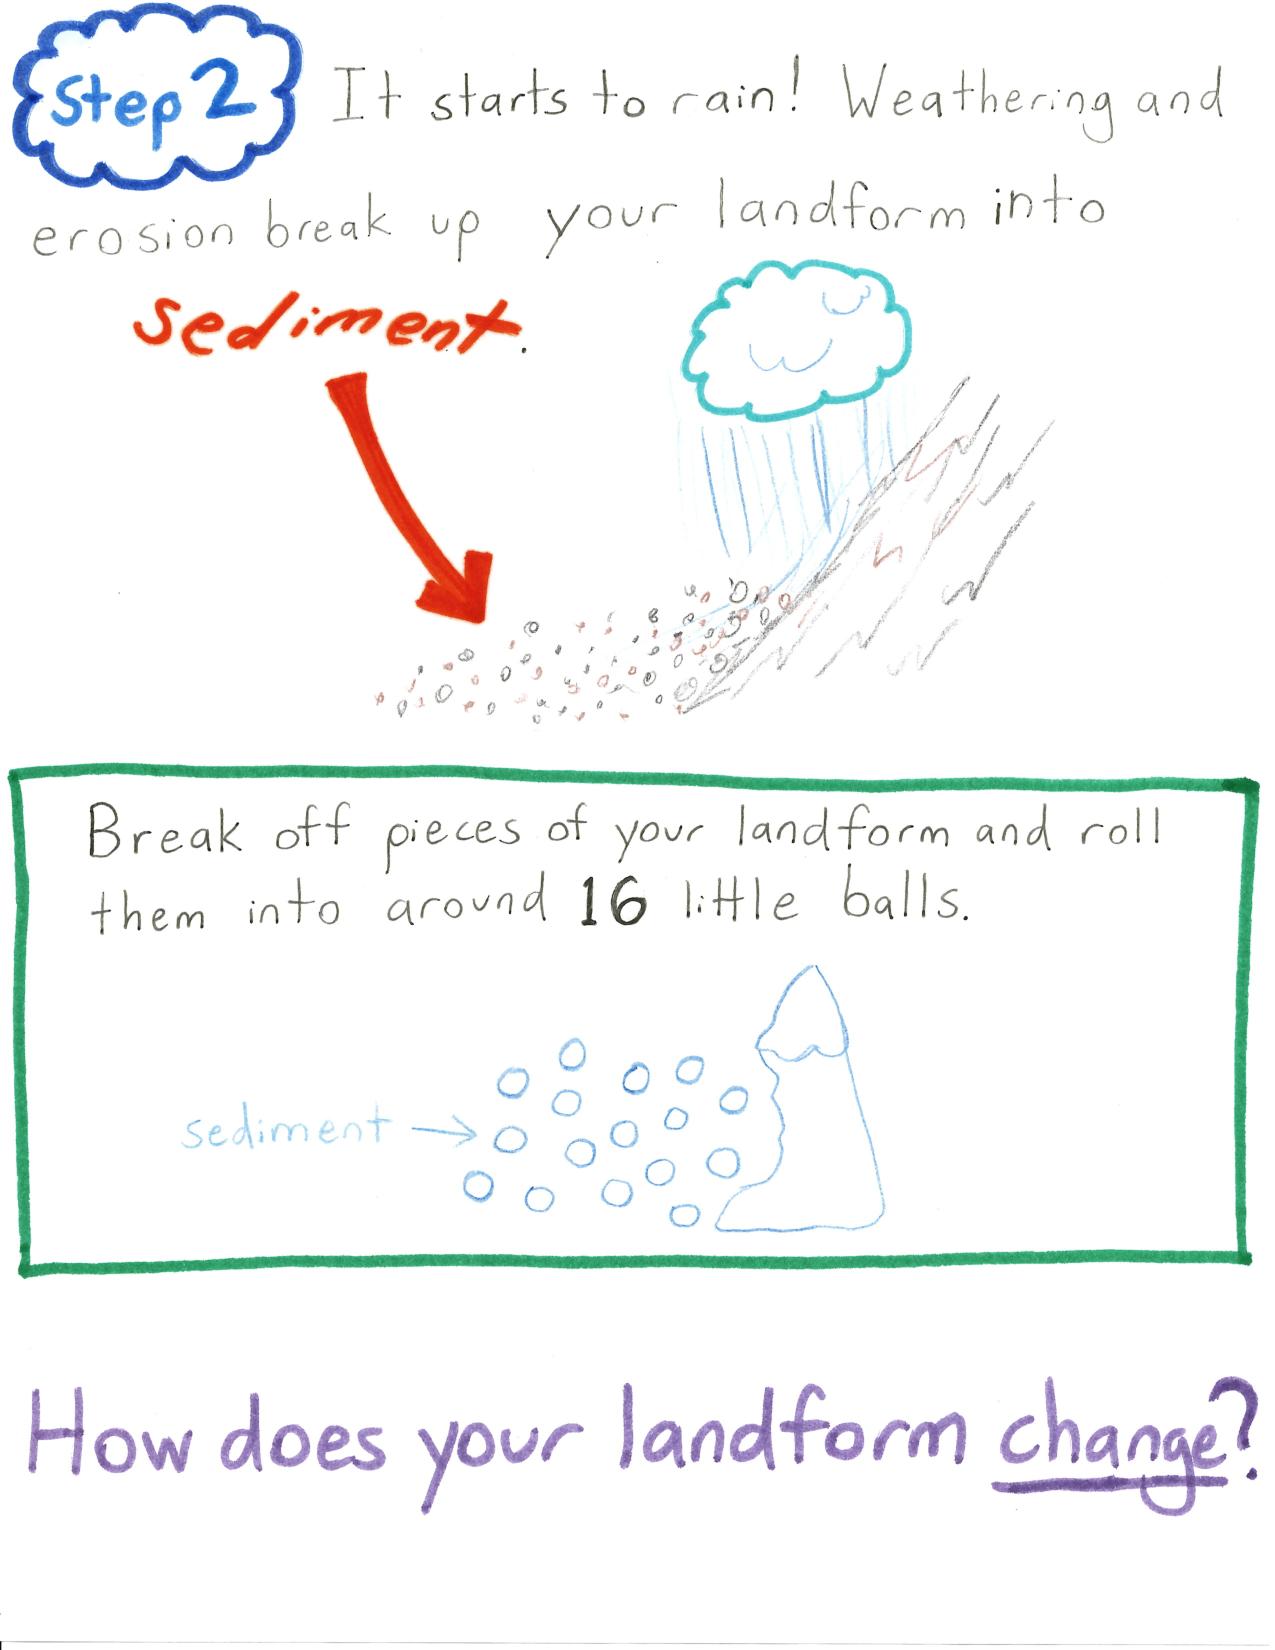 Step 2 It starts to rain! Weathering and
erosion break up your landform into
sediment.
Break off pieces of your landform and roll
them into around 16 little balls.
sediment
How does your landform change?